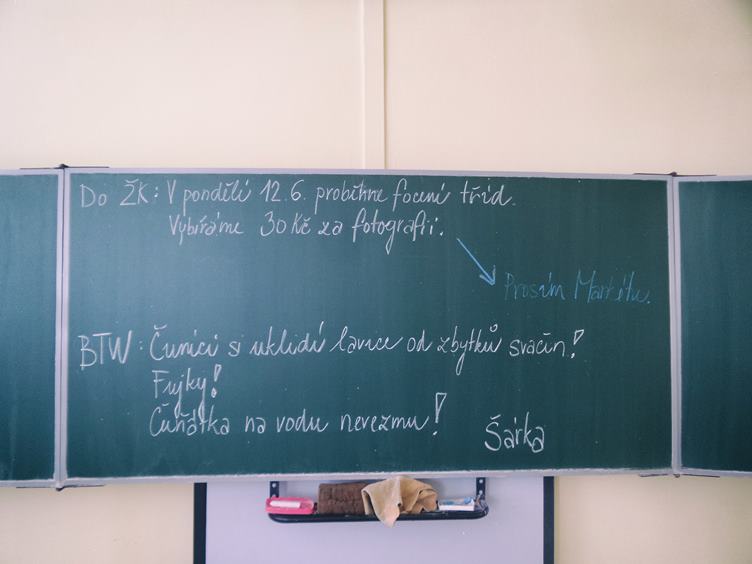 Do ŽK: V pondělí 12.6. proběhne focení tříd.
Vybíráme 30 Kč za fotografii.
Prosím Markétu.
BTW: Čuníci si uklidí lavice od zbytků svačin!
Fujky!
Čuňátka na vodu nevezmu!
Šárka